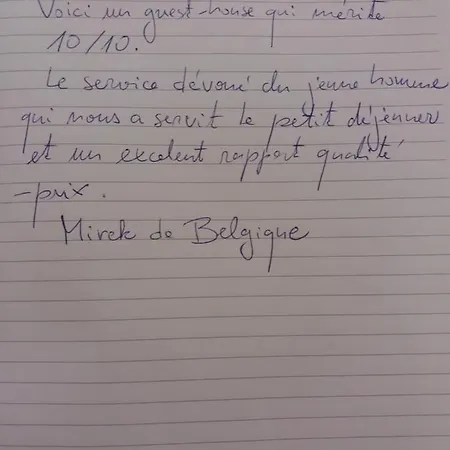 Voici un guest-house qui mérite
10/10.
Le service dévoué du jeune homme
qui nous a servit le petit déjeuner
et un excelent rapport qualité
-prix.
Mirek de Belgique